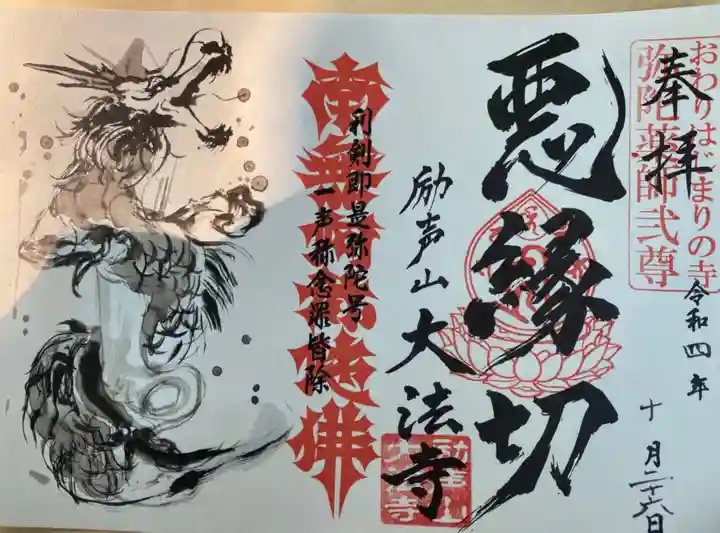 おわりはじまりの寺
弥陀薬師弐尊
奉拝
令和四年
十月二十六日
悪縁切
励声山
大法寺
利剣即是弥陀号
一声称念罪皆除
南無阿弥陀佛